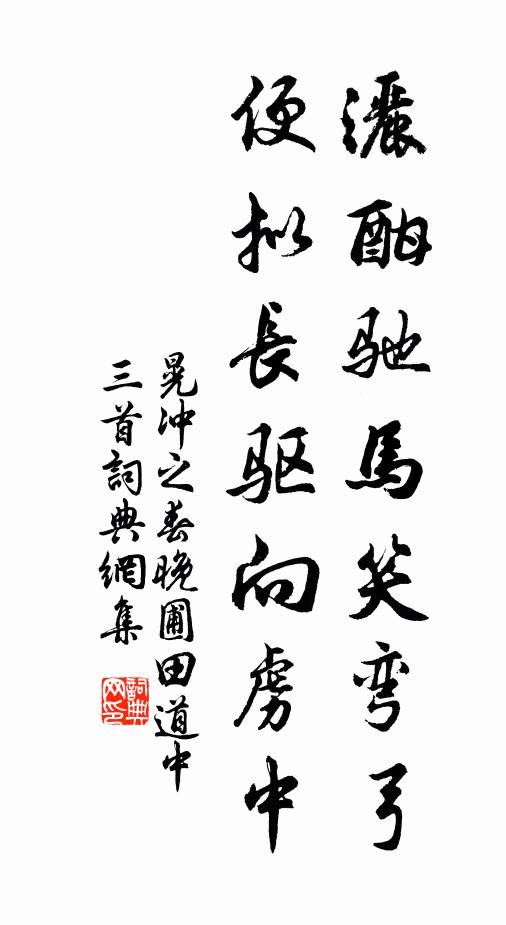 灑酣驰馬笑弯弓
便拟長驱向虏中
晃冲之春晚圃田道中
三首詞典網集
詞典网印